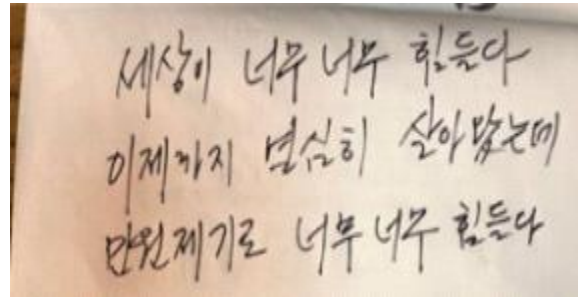 세상이 너무 너무 힘들다
이제까지 열심히 살아 왔는데
민원제기로 너무 너무 힘들다